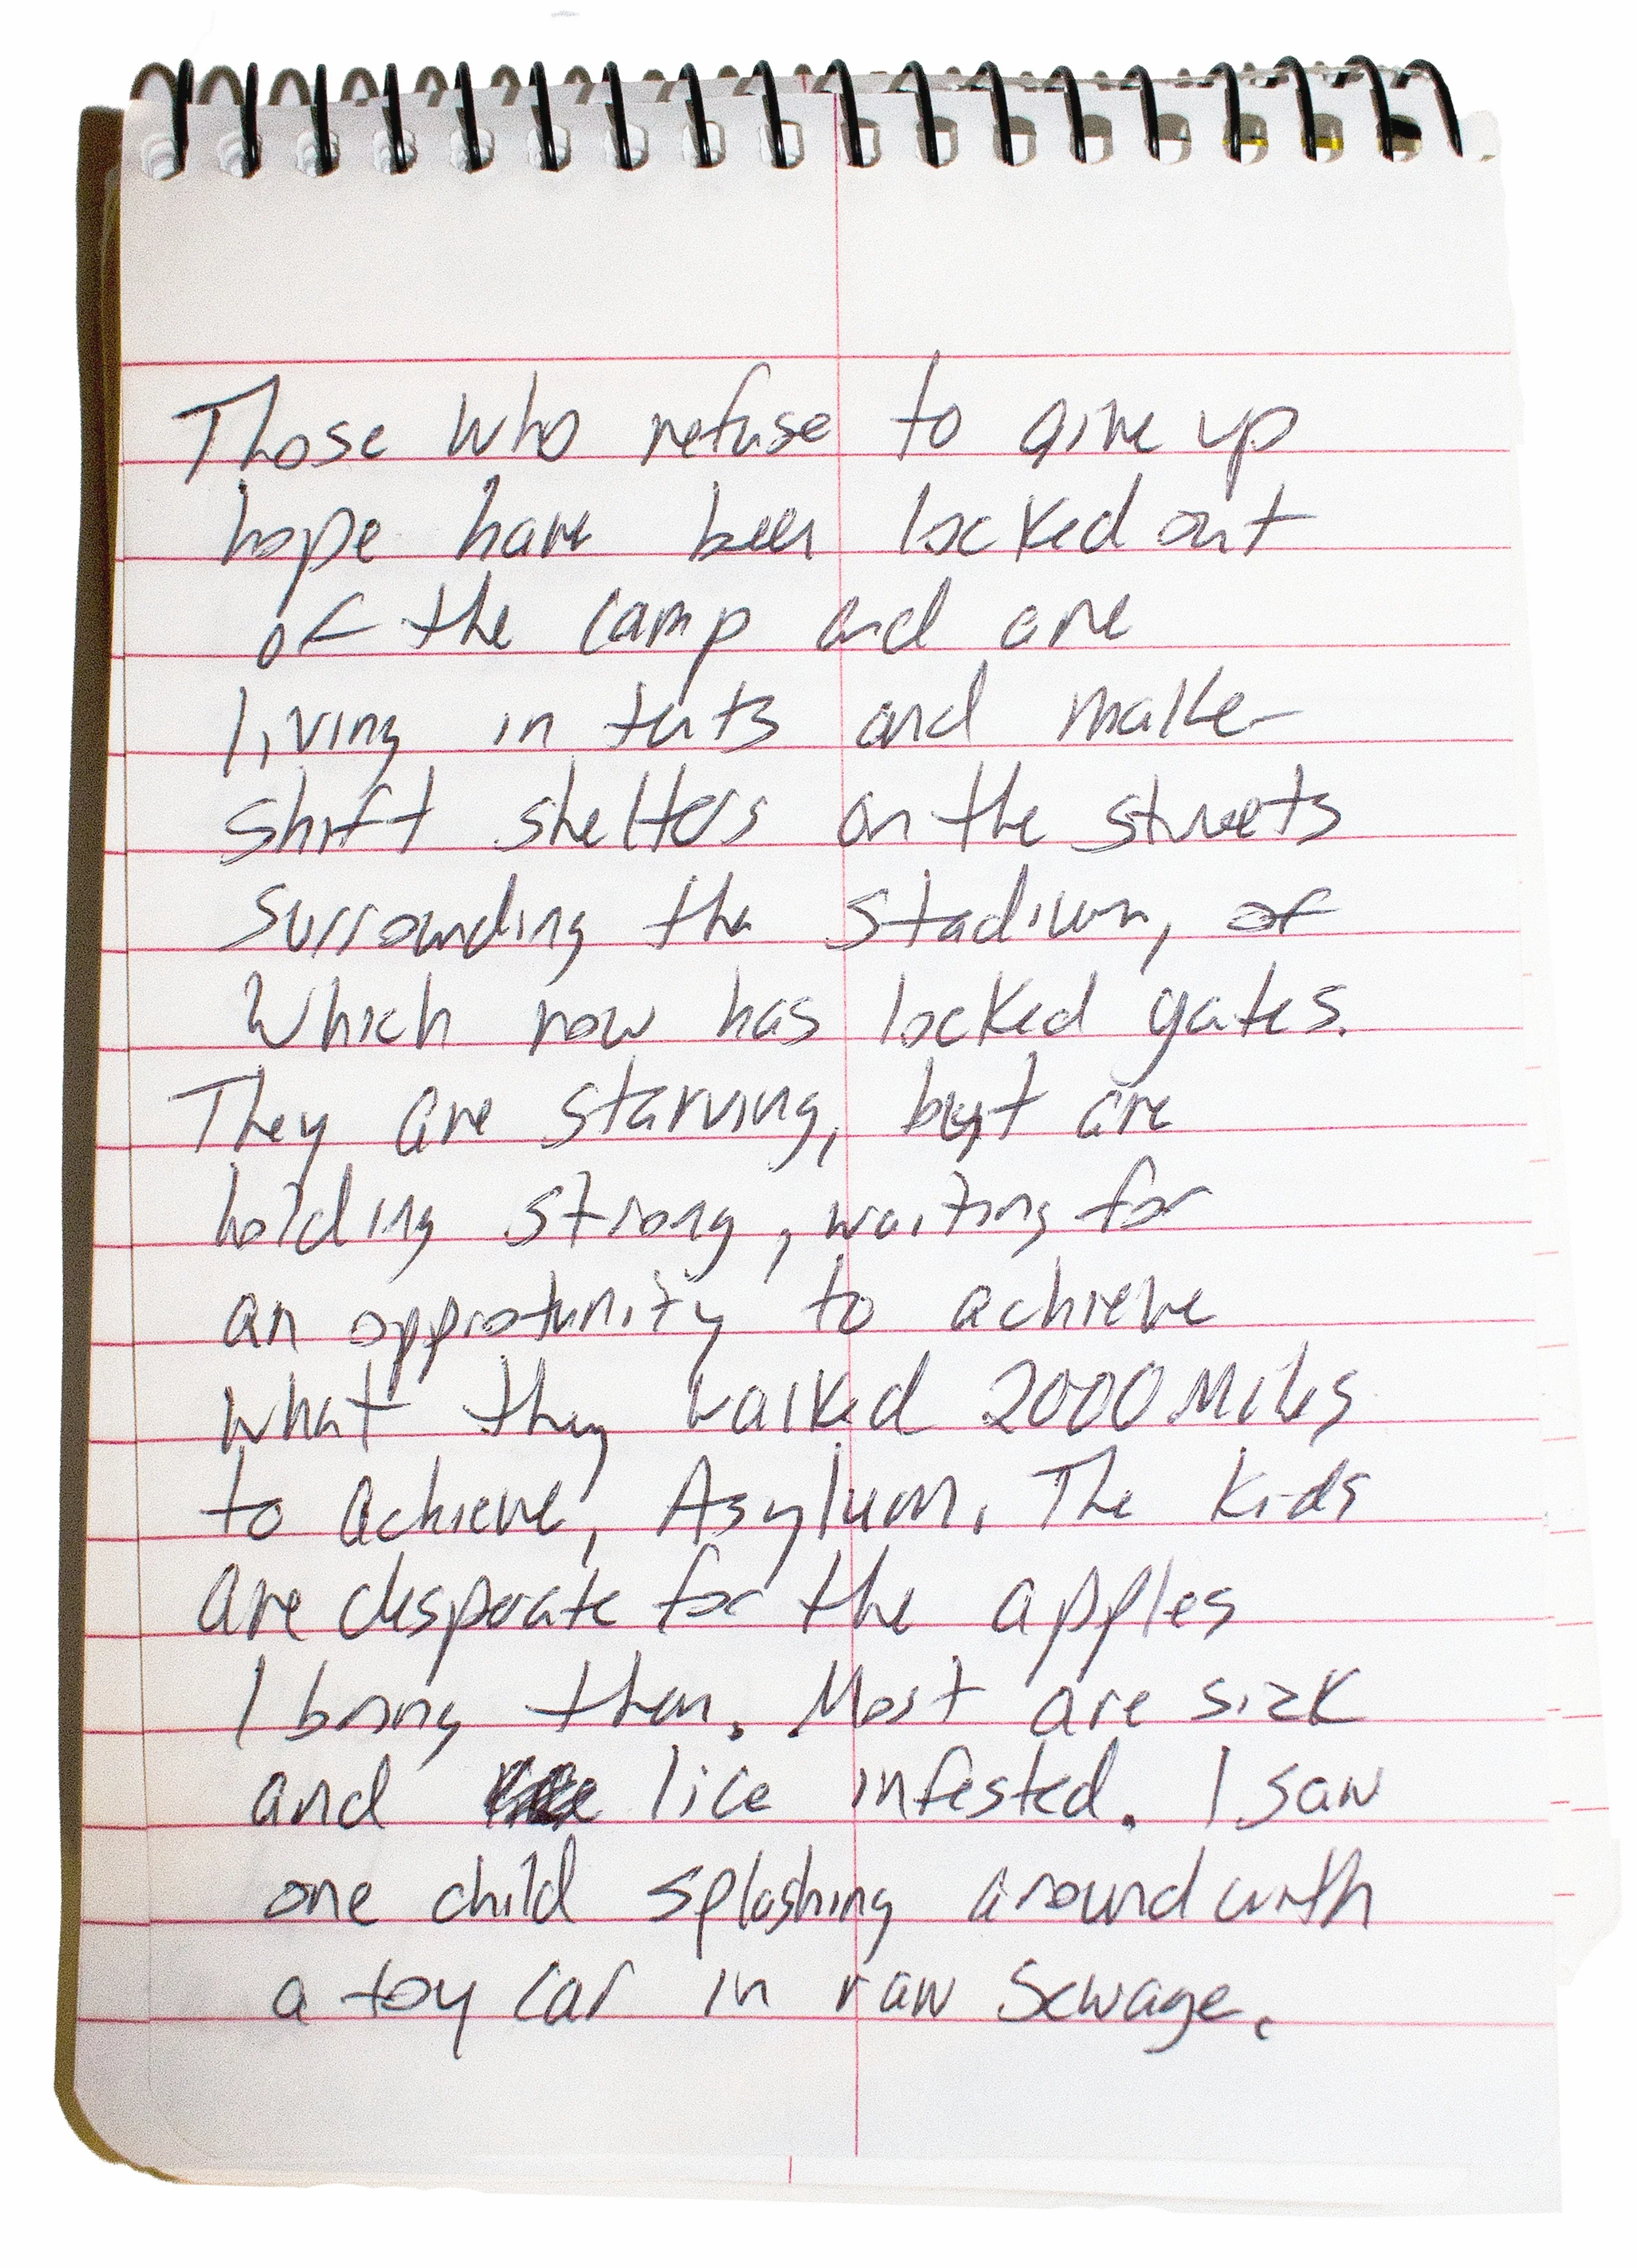 Those who refuse to give up
hope have been locked out
of the camp and are
living in tents and make-
shift shelters on the streets
surrounding the stadium, of
which now has locked gates.
They are starving, but are
holding strong, waiting for
an opprotunity to achieve
what they walked 2000 Miles
to achieve, Asylum. The kids
are desperate for the apples
I bring them. Most are sick
and lice infested. I saw
one child splashing around with
a toy car in raw sewage.